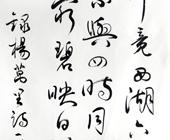 竟西湖六
不與四時同
窮碧映日
錄楊萬里詩